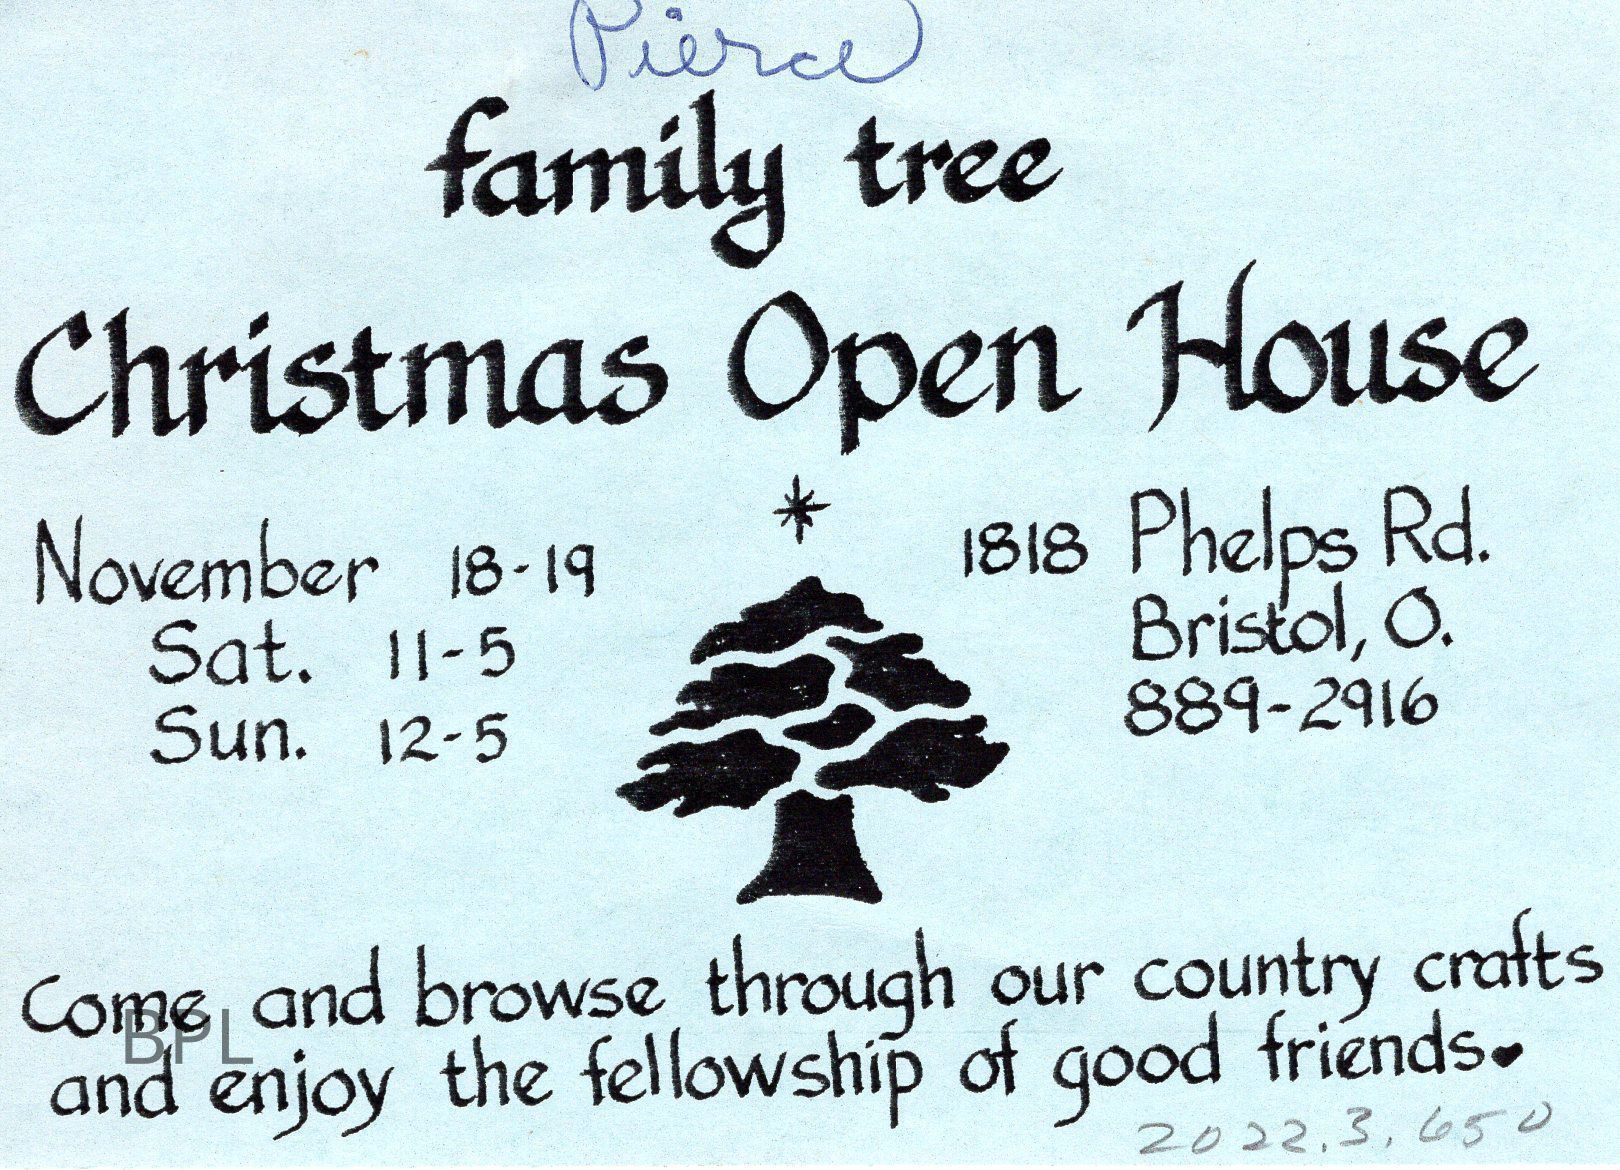 Pierce
family tree
Christmas Open House
November 18-19
Sat. 11-5
Sun. 12-5
1818 Phelps Rd.
Bristol, O.
889-2916
Come and browse through our country crafts
and enjoy the fellowship of good friends.
BPL
2022.3.650